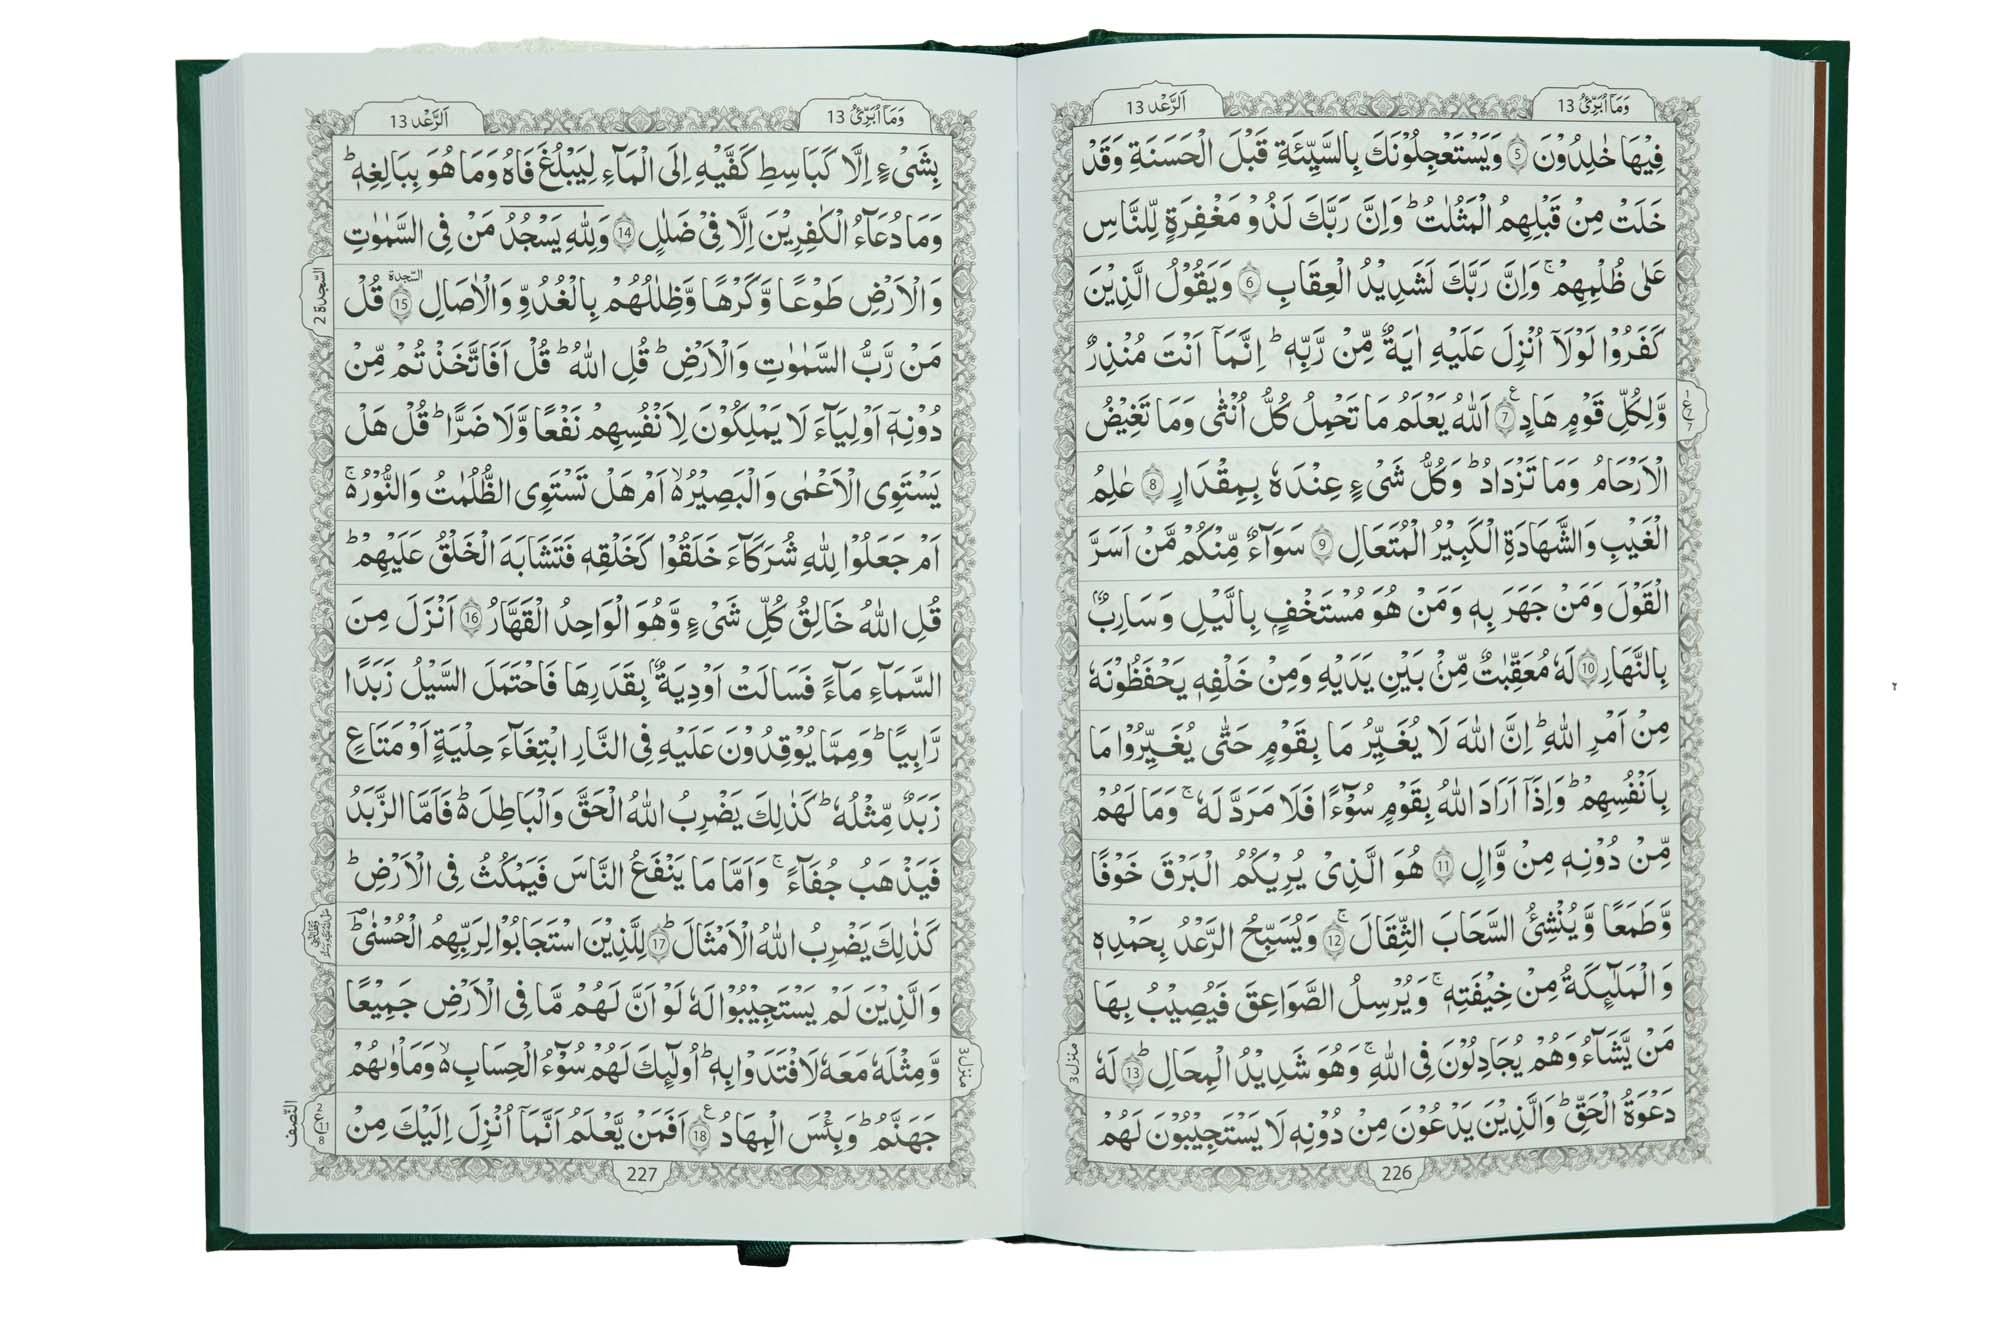 وَمَآ اُبَرِّئُ 13
اَلرَّعْد 13
فِيْهَا خٰلِدُوْنَ 5 وَيَسْتَعْجِلُوْنَكَ بِالسَّيِّئَةِ قَبْلَ الْحَسَنَةِ وَقَدْ
خَلَتْ مِنْ قَبْلِهِمُ الْمَثُلٰتُ ؕ وَاِنَّ رَبَّكَ لَذُوْ مَغْفِرَةٍ لِّلنَّاسِ
عَلٰى ظُلْمِهِمْ ۚ وَاِنَّ رَبَّكَ لَشَدِيْدُ الْعِقَابِ 6 وَيَقُوْلُ الَّذِيْنَ
كَفَرُوْا لَوْلَآ اُنْزِلَ عَلَيْهِ اٰيَةٌ مِّنْ رَّبِّهٖ ؕ اِنَّمَآ اَنْتَ مُنْذِرٌ
وَّلِكُلِّ قَوْمٍ هَادٍ 7 ع اَللّٰهُ يَعْلَمُ مَا تَحْمِلُ كُلُّ اُنْثٰى وَمَا تَغِيْضُ
الْاَرْحَامُ وَمَا تَزْدَادُ ؕ وَكُلُّ شَىْءٍ عِنْدَهٗ بِمِقْدَارٍ 8 عٰلِمُ
الْغَيْبِ وَالشَّهَادَةِ الْكَبِيْرُ الْمُتَعَالِ 9 سَوَآءٌ مِّنْكُمْ مَّنْ اَسَرَّ
الْقَوْلَ وَمَنْ جَهَرَ بِهٖ وَمَنْ هُوَ مُسْتَخْفٍۭ بِالَّيْلِ وَسَارِبٌۢ
بِالنَّهَارِ 10 لَهٗ مُعَقِّبٰتٌ مِّنْۢ بَيْنِ يَدَيْهِ وَمِنْ خَلْفِهٖ يَحْفَظُوْنَهٗ
مِنْ اَمْرِ اللّٰهِ ؕ اِنَّ اللّٰهَ لَا يُغَيِّرُ مَا بِقَوْمٍ حَتّٰى يُغَيِّرُوْا مَا
بِاَنْفُسِهِمْ ؕ وَاِذَآ اَرَادَ اللّٰهُ بِقَوْمٍ سُوْٓءًا فَلَا مَرَدَّ لَهٗ ۚ وَمَا لَهُمْ
مِّنْ دُوْنِهٖ مِنْ وَّالٍ 11 هُوَ الَّذِىْ يُرِيْكُمُ الْبَرْقَ خَوْفًا
وَّطَمَعًا وَّيُنْشِئُ السَّحَابَ الثِّقَالَ ۚ 12 وَيُسَبِّحُ الرَّعْدُ بِحَمْدِهٖ
وَالْمَلٰٓئِكَةُ مِنْ خِيْفَتِهٖ ۚ وَيُرْسِلُ الصَّوَاعِقَ فَيُصِيْبُ بِهَا
مَنْ يَّشَآءُ وَهُمْ يُجَادِلُوْنَ فِى اللّٰهِ ۚ وَهُوَ شَدِيْدُ الْمِحَالِ ؕ 13 لَهٗ
دَعْوَةُ الْحَقِّ ؕ وَالَّذِيْنَ يَدْعُوْنَ مِنْ دُوْنِهٖ لَا يَسْتَجِيْبُوْنَ لَهُمْ
منزل 3
226
وَمَآ اُبَرِّئُ 13
اَلرَّعْد 13
بِشَىْءٍ اِلَّا كَبَاسِطِ كَفَّيْهِ اِلَى الْمَآءِ لِيَبْلُغَ فَاهُ وَمَا هُوَ بِبَالِغِهٖ ؕ
وَمَا دُعَآءُ الْكٰفِرِيْنَ اِلَّا فِىْ ضَلٰلٍ 14 وَلِلّٰهِ يَسْجُدُ مَنْ فِى السَّمٰوٰتِ
وَالْاَرْضِ طَوْعًا وَّكَرْهًا وَّظِلٰلُهُمْ بِالْغُدُوِّ وَالْاٰصَالِ 15 السّجدة قُلْ
مَنْ رَّبُّ السَّمٰوٰتِ وَالْاَرْضِ ؕ قُلِ اللّٰهُ ؕ قُلْ اَفَاتَّخَذْتُمْ مِّنْ
دُوْنِهٖٓ اَوْلِيَآءَ لَا يَمْلِكُوْنَ لِاَنْفُسِهِمْ نَفْعًا وَّلَا ضَرًّا ؕ قُلْ هَلْ
يَسْتَوِى الْاَعْمٰى وَالْبَصِيْرُ ۙ اَمْ هَلْ تَسْتَوِى الظُّلُمٰتُ وَالنُّوْرُ ۚ
اَمْ جَعَلُوْا لِلّٰهِ شُرَكَآءَ خَلَقُوْا كَخَلْقِهٖ فَتَشَابَهَ الْخَلْقُ عَلَيْهِمْ ؕ
قُلِ اللّٰهُ خَالِقُ كُلِّ شَىْءٍ وَّهُوَ الْوَاحِدُ الْقَهَّارُ 16 اَنْزَلَ مِنَ
السَّمَآءِ مَآءً فَسَالَتْ اَوْدِيَةٌۢ بِقَدَرِهَا فَاحْتَمَلَ السَّيْلُ زَبَدًا
رَّابِيًا ؕ وَمِمَّا يُوْقِدُوْنَ عَلَيْهِ فِى النَّارِ ابْتِغَآءَ حِلْيَةٍ اَوْ مَتَاعٍ
زَبَدٌ مِّثْلُهٗ ؕ كَذٰلِكَ يَضْرِبُ اللّٰهُ الْحَقَّ وَالْبَاطِلَ ؕ فَاَمَّا الزَّبَدُ
فَيَذْهَبُ جُفَآءً ۚ وَاَمَّا مَا يَنْفَعُ النَّاسَ فَيَمْكُثُ فِى الْاَرْضِ ؕ
كَذٰلِكَ يَضْرِبُ اللّٰهُ الْاَمْثَالَ ؕ 17 لِلَّذِيْنَ اسْتَجَابُوْا لِرَبِّهِمُ الْحُسْنٰى ؕ
وَالَّذِيْنَ لَمْ يَسْتَجِيْبُوْا لَهٗ لَوْ اَنَّ لَهُمْ مَّا فِى الْاَرْضِ جَمِيْعًا
وَّمِثْلَهٗ مَعَهٗ لَافْتَدَوْا بِهٖ ؕ اُولٰٓئِكَ لَهُمْ سُوْٓءُ الْحِسَابِ ۙ وَمَاْوٰىهُمْ
جَهَنَّمُ ؕ وَبِئْسَ الْمِهَادُ 18 ع اَفَمَنْ يَّعْلَمُ اَنَّمَآ اُنْزِلَ اِلَيْكَ مِنْ
السّجدة 2
النّصف
منزل 3
227